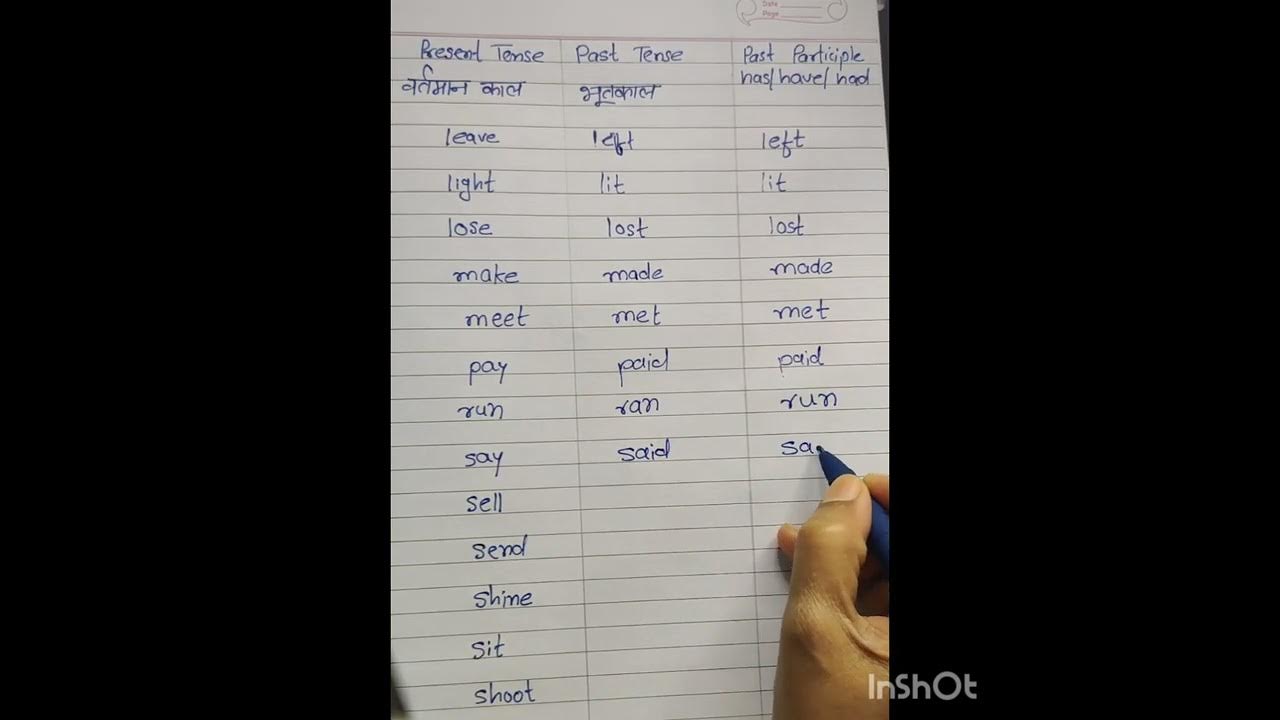 Date
Page
Present Tense Past Tense Past Participle
वर्तमान काल भूतकाल has/have/had
leave left left
light lit lit
lose lost lost
make made made
meet met met
pay paid paid
run ran run
say said sa
sell
send
shine
sit
shoot
InShOt